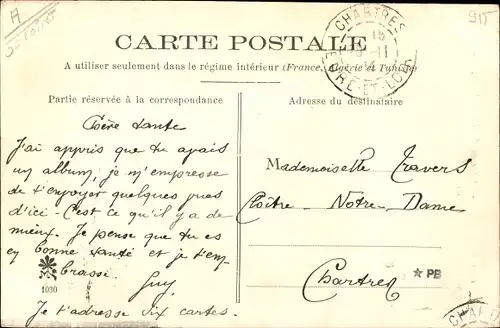 A
35 Foiret
91T
CHARTRES
15
9-11
14
EURE-ET-LOIR
CARTE POSTALE
A utiliser seulement dans le régime intérieur (France, Algérie et Tunisie)
Partie réservée à la correspondance
Adresse du destinataire
Chère tante
J'ai appris que tu avais
un album, je m'empresse
de t'envoyer quelques vues
d'ici - C'est ce qu'il y a de
mieux. Je pense que tu es
en bonne santé et je t'em-
brasse.
Guy
1030
Je t'adresse six cartes.
Mademoiselle Travers
Cloître - Notre - Dame
Chartres
PB
CHART